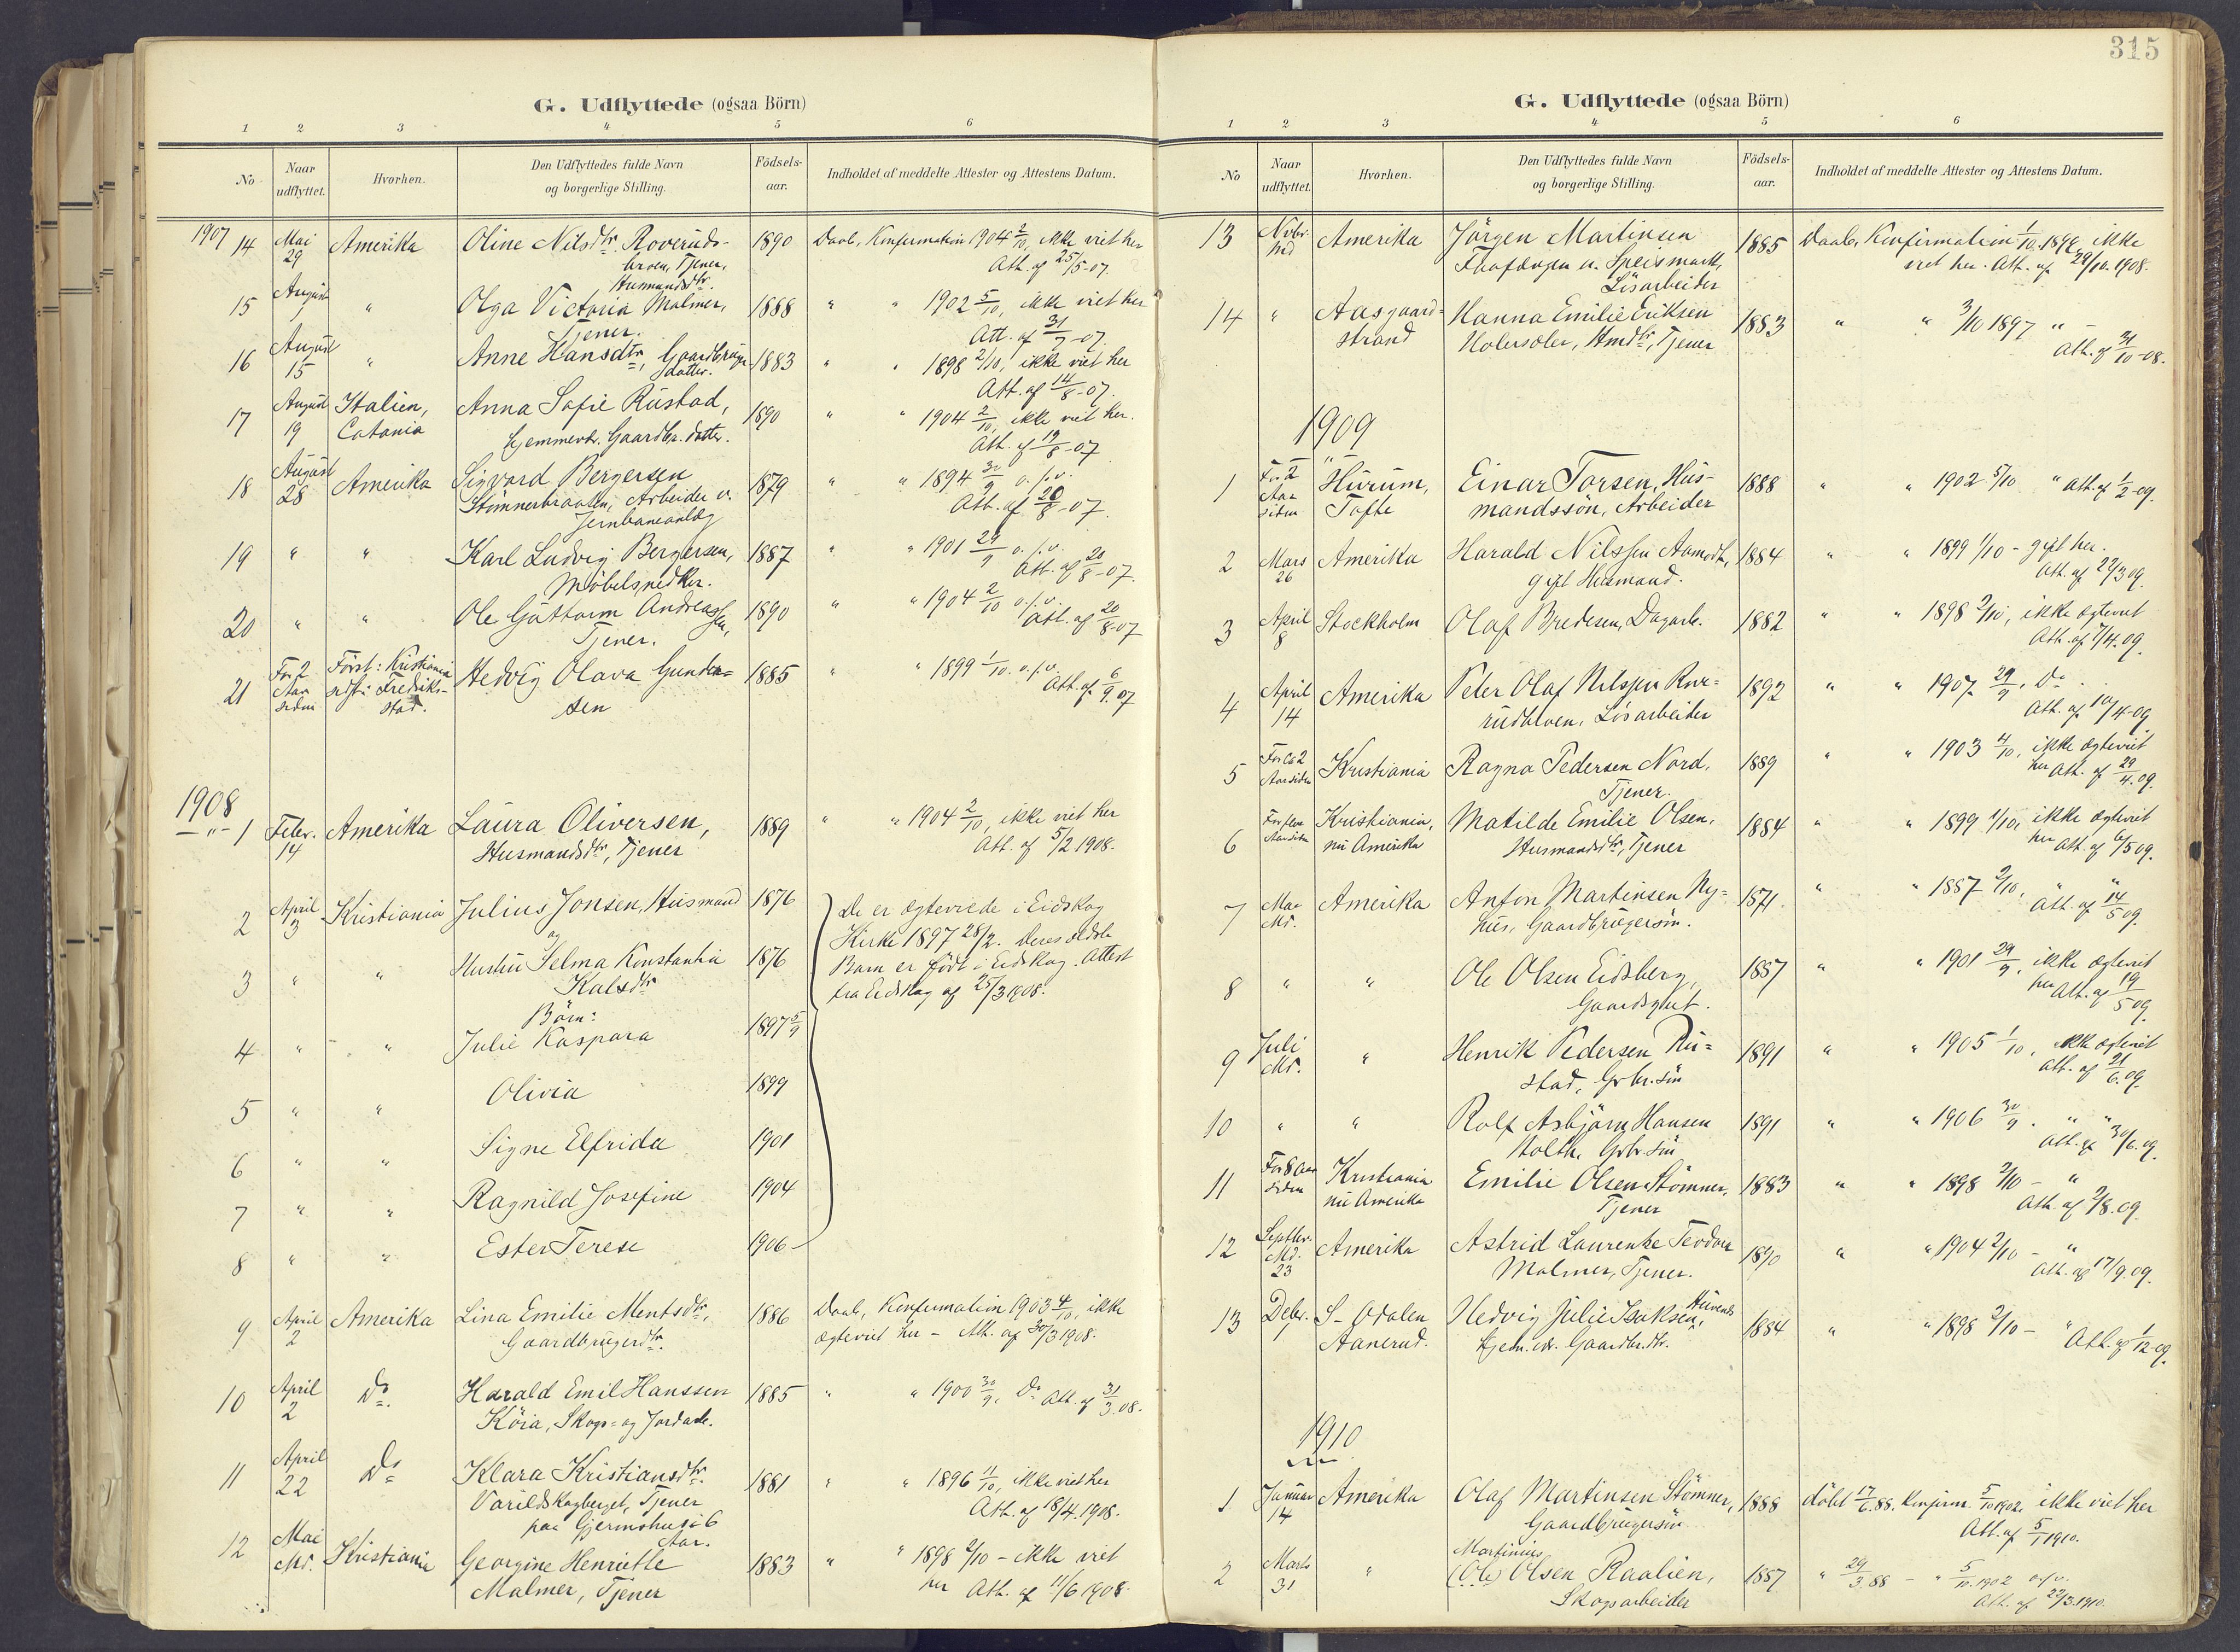 315
G. Udflyttede (ogsaa Börn)
1 2 3 4 5 6
No Naar udflyttet. Hvorhen. Den Udflyttedes fulde Navn og borgerlige Stilling. Födsels-aar. Indholdet af meddelte Attester og Attestens Datum.
1907
14 Mai 29 Amerika Oline Nilsdtr. Roveruds- 1890 Daab, Konfirmation 1904 2/10, ikke viet her
broen, Tjener, Att. af 25/5-07.
Husmandsdtr.
15 August 1 " Olga Victoria Malmer, 1888 " " 1902 5/10, ikke viet her
Tjener. Att. af 31/7-07.
16 August 15 " Anne Hansdtr, Gaardbruger- 1883 " " 1898 2/10, ikke viet her
datter. Att. af 14/8-07.
17 August 19 Italien, Anna Sofie Rustad, 1890 " " 1904 2/10, ikke viet her.
Catania hjemmevr. Gaardbr. datter. Att. af 19/8-07
18 August 28 Amerika Sigvard Bergersen 1879 " " 1894 30/9 o.s.v.
Stömnerbraaten, Arbeider v. Att. af 20/8-07.
Jernbaneanlæg
19 " " Karl Ludvig Bergersen, 1887 " " 1901 29/9 o.s.v.
Möbelsnedker. Att. af 20/8-07.
20 " " Ole Guttorm Andreassen, 1890 " " 1904 2/10 o.s.v.
Tjener. Att. af 20/8-07
21 For 2 Aar siden Först: Kristiania Hedvig Olava Gunder- 1885 " " 1899 1/10. o.s.v.
sidst: Fredrik- sen Att. af 6/9.07
stad.
1908
1 Febr. 14 Amerika Laura Oliversen, 1889 " " 1904 2/10, ikke viet her
Husmandsdtr, Tjener Att. af 5/2 1908.
2 April 3 Kristiania Julius Jonsen, Husmand 1876 De er ægteviede i Eidskog
og Kirke 1897 28/2. Deres ældste
3 " " Hustru Selma Konstantia 1876 Barn er födt i Eidskog. Attest
Kalsdtr fra Eidskog af 25/3 1908.
Börn:
4 " " Julie Kaspara 1897 5/9
5 " " Olivia 1899
6 " " Signe Elfrida 1901
7 " " Ragnild Josefine 1904
8 " " Ester Terese 1906
9 April 2 Amerika Lina Emilie Mentsdtr, 1886 Daab, Konfirmation 1903 4/10, ikke
Gaardbrugerdtr. ægteviet her - Att. af 30/3 1908.
10 April 2 Do. Harald Emil Hanssen 1885 " " 1900 30/9, Do Att. af 31/3.08.
Köia, Skogs- og Jordarb.
11 April 22 Do Klara Kristiansdtr. 1881 " " 1896 11/10, ikke viet her
Varildskogberget, Tjener Att. af 18/4.1908.
paa Gjermshus i 6
Aar.
12 Mai Md. Kristiania Georgine Henriette 1883 " " 1898 2/10 - ikke viet
Malmer, Tjener her Att. af 11/6 1908.
G. Udflyttede (ogsaa Börn)
1 2 3 4 5 6
No Naar udflyttet. Hvorhen. Den Udflyttedes fulde Navn og borgerlige Stilling. Födsels-aar. Indholdet af meddelte Attester og Attestens Datum.
13 Nvbr. Md Amerika Jörgen Martinsen 1885 Daab, Konfirmation 1/10. 1899, ikke
u. Speismark, viet her. Att. af 29/10. 1908.
Lösarbeider
14 " Aasgaard- Hanna Emilie Eriksen 1883 " " 3/10 1897 " -
strand Holersoler, Hmdtr, Tjener Att. af 31/10-08.
1909
1 For 2 Aar siden Hurum, Einar Torsen, Hus- 1888 " " 1902 5/10 " Att. af 1/2-09.
Tofte mandssön, Arbeider
2 Mars 26 Amerika Harald Nilssen Aamodt, 1884 " " 1899 1/10 - gift her.
gift Husmand. Att. af 22/3 09.
3 April 8 Stockholm Olaf Bredesen, Dagarb. 1882 " " 1898 2/10, ikke ægteviet
Att. af 7/4.09.
4 April 14 Amerika Peter Olaf Nilssen Rve- 1892 " " 1907 29/9, Do.
rudbloen, Lösarbeider Att. af 10/4-09
5 For ca 2 Aar siden Kristiania Ragna Pedersen Nord, 1889 " " 1903 4/10, ikke ægteviet
Tjener. her Att. af 29/4.09.
6 For flere Aar siden Kristiania, Matilde Emilie Olsen, 1884 " " 1899 1/10, ikke ægteviet
nu Amerika Husmandsdtr, Tjener her Att. af 6/5 09.
7 Mai Md. Amerika Anton Martinsen Ny- 1871. " " 1887 2/10, " "
hus, Gaardbrugersön. Att. af 14/5 09.
8 " " Ole Olsen Eidsberg, 1887 " " 1901 29/9, ikke ægteviet
Gaardsgut. her Att. af 19/5 09.
9 Juli Md. " Henrik Pedersen Ru- 1891 " " 1905 1/10, ikke ægteviet
stad, Grbr. sön Att. af 21/6.09.
10 " " Rolf Asbjörn Hansen 1891 " " 1906 30/9. " "
Holth, Grbr. sön Att. af 30/6.09.
11 For 8 Aar siden Kristiania Emilie Olsen Stömner, 1883 " " 1898 2/10 - "
nu Amerika Tjener Att. af 2/8.09.
12 Septbr. Md. 23 Amerika Astrid Laurentse Teodora 1890 " " 1904 2/10 - "
Malmer, Tjener. Att. af 17/9.09.
13 Debr. S- Odalen Hedvig Julie Isaksen, 1884 " " 1898 2/10 - " Att. af 1/12-09.
Aanerud. hjem. vr. Gaardbr. dtr.
1910
1 Januar 14 Amerika Olaf Martinsen Stömner, 1888 döbt 17/6.88. Konfirm. 5/10 1902. ikke viet her
Gaardbrugersön Att. af 5/1 1910.
Martinius
2 Marts 31 " (Ole) Olsen Raalien, 1887 " 29/3.88 - " 5/10.1902 o.s.v.
Skogsarbeider Att. af 22/3.1910.